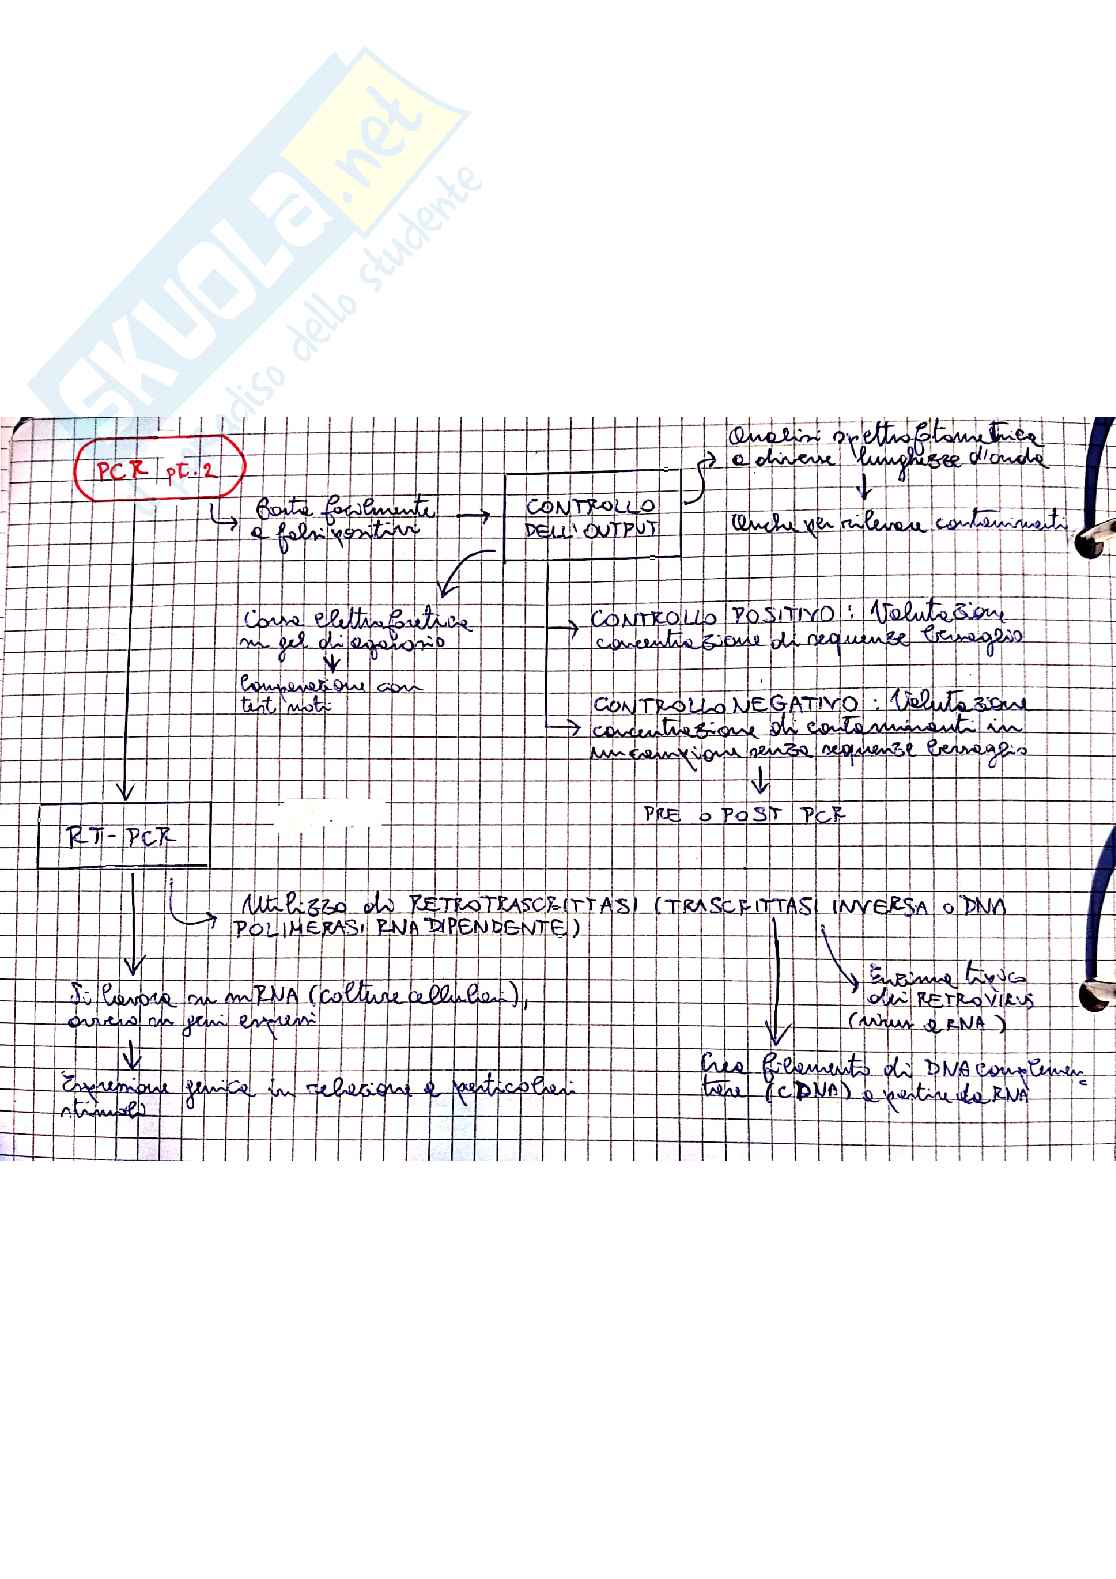 SKUOLA.net
paradiso dello studente
PCR pt.2
Porta facilmente
a falsi positivi
CONTROLLO
DELL'OUTPUT
Analisi spettrofotometrica
a diverse lunghezze d'onda
Anche per rilevare contaminanti
Corsa elettroforetica
in gel di agarosio
Comparazione con
test noti
CONTROLLO POSITIVO: Valutazione
concentrazione di sequenze bersaglio
CONTROLLO NEGATIVO: Valutazione
concentrazione di contaminanti in
un campione senza sequenze bersaglio
PRE o POST PCR
RT-PCR
Utilizzo di RETROTRASCRITTASI (TRASCRITTASI INVERSA o DNA
POLIMERASI RNA DIPENDENTE)
Si lavora su mRNA (colture cellulari),
ovvero su geni espressi
Espressione genica in relazione a particolari
stimoli
Enzima tipico
dei RETROVIRUS
(virus a RNA)
Crea filamento di DNA complemen-
tare (cDNA) a partire da RNA